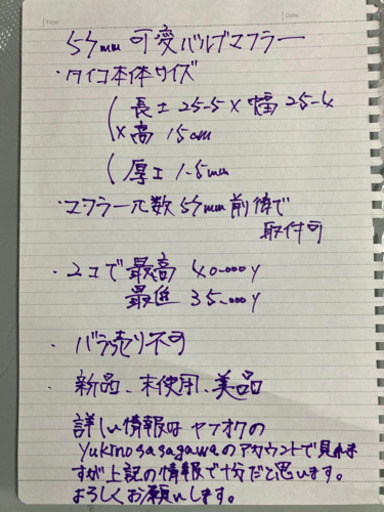 Title
Date
57mm 可愛バルブマフラー
・タイコ本体サイズ
(長さ 25-5 × 幅 25-4
×高 15cm
(厚さ 1-5mm
・マフラー穴数 57mm前後で
取付可
・2コで最高 40.000y
最低 35.000y
・バラ売り不可
・新品、未使用、美品
詳しい情報は ヤフオクの
Yukinosasagawaのアカウントで見れま
すが上記の情報で十分だと思います。
よろしくお願いします。